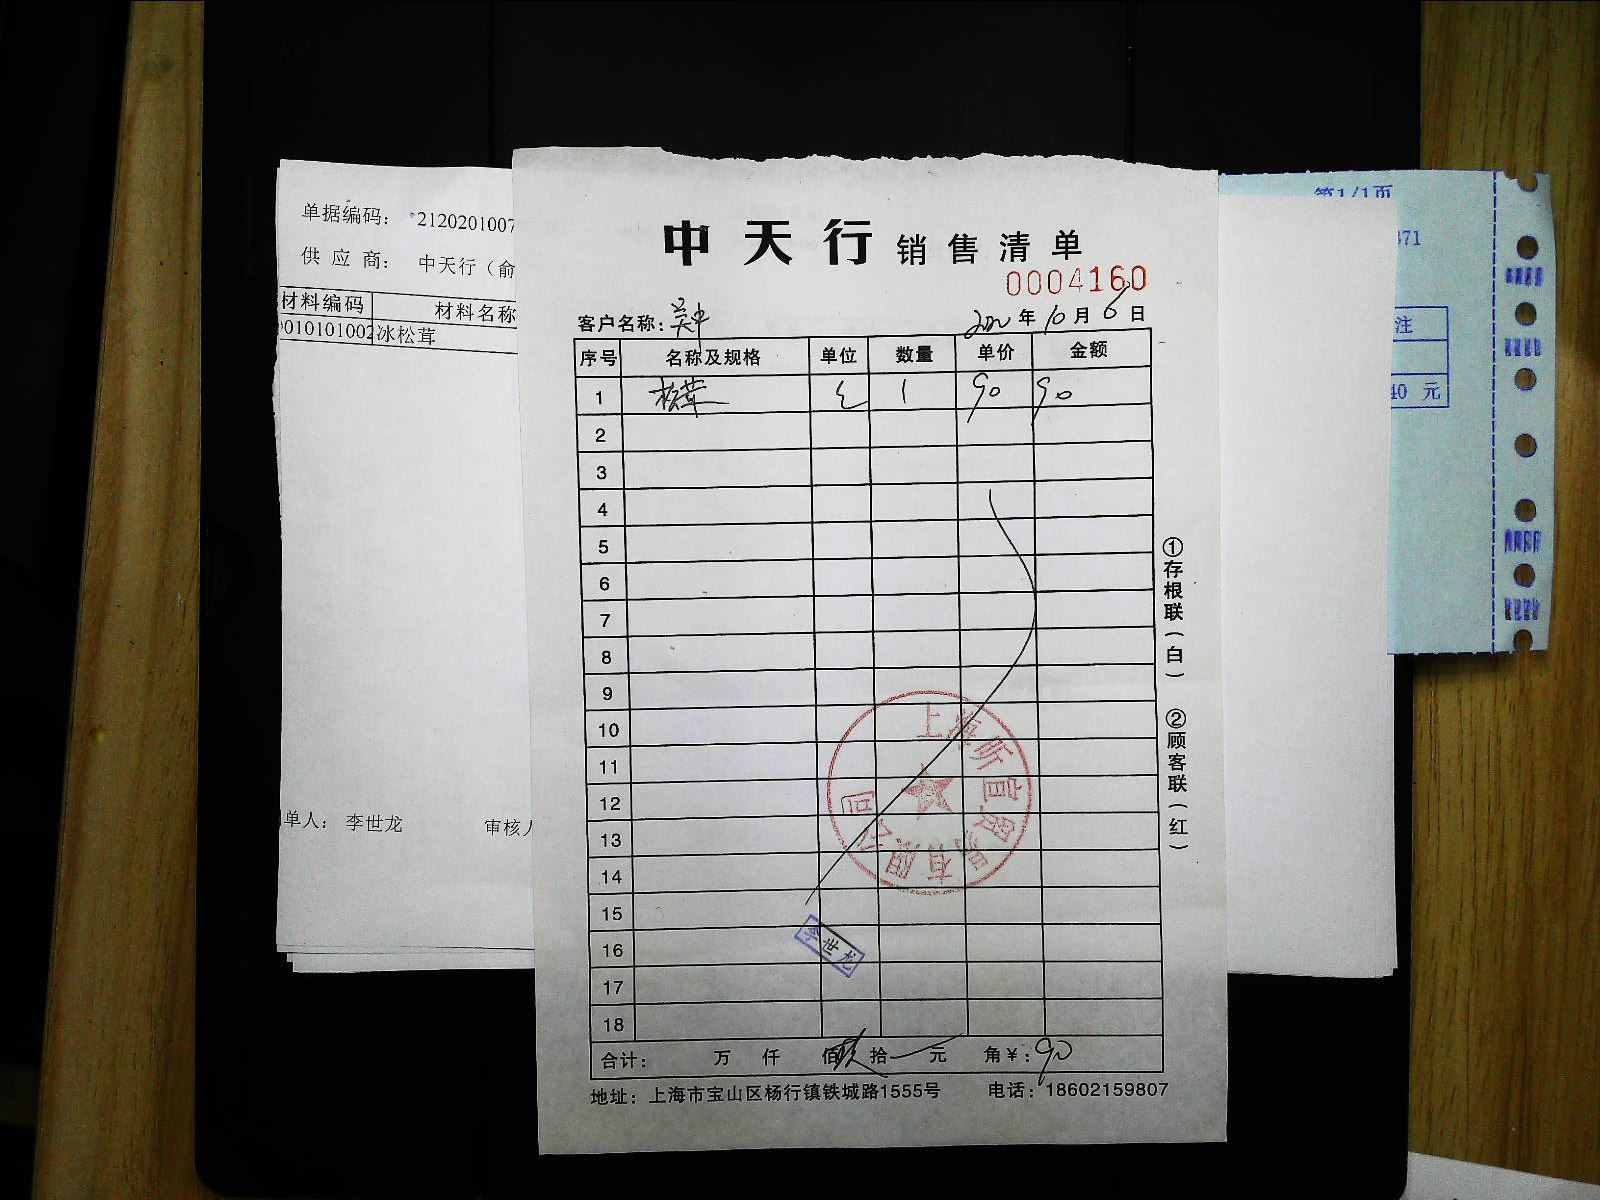 单据编码： *2120201007
供 应 商： 中天行（俞
材料编码 材料名称
0010101002 冰松茸
单人： 李世龙 审核人
第1/1页
371
注
40 元
中天行 销售清单
0004160
客户名称：吴中 2020 年 10 月 6 日
序号 名称及规格 单位 数量 单价 金额
1 松茸 1 90 90
2
3
4
5
6
7
8
9
10
11
12
13
14
15
16
17
18
上海昕宜贸易有限公司
李世龙
合计： 万 仟 佰 玖 拾 元 角 ¥：90
地址：上海市宝山区杨行镇铁城路1555号 电话：18602159807
①存根联（白）
②顾客联（红）